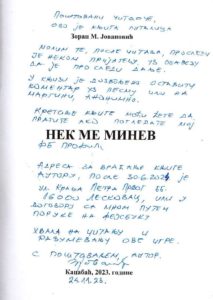 Поштовани читаоче,
ово је књига путалица
Зоран М. Јовановић
Молим те, после читања, проследи
је неком пријатељу уз обавезу
да је проследи даље.
У књизи је дозвољено оставити
коментар уз песму или на
маргини, анонимно.
Кретање књиге може да
пратите ако погледате мој
НЕК МЕ МИНЕВ
ФБ профил.
Адреса за враћање књиге
аутору, после 30.6.2024 је
ул. Краља Петра Првог
16000 Лесковац, или у
договору са мном путем
поруке на фејсбуку
Хвала на читању и
разумевању ове игре.
С поштовањем, аутор.
Кацабаћ, 2023. године
24.11.23.